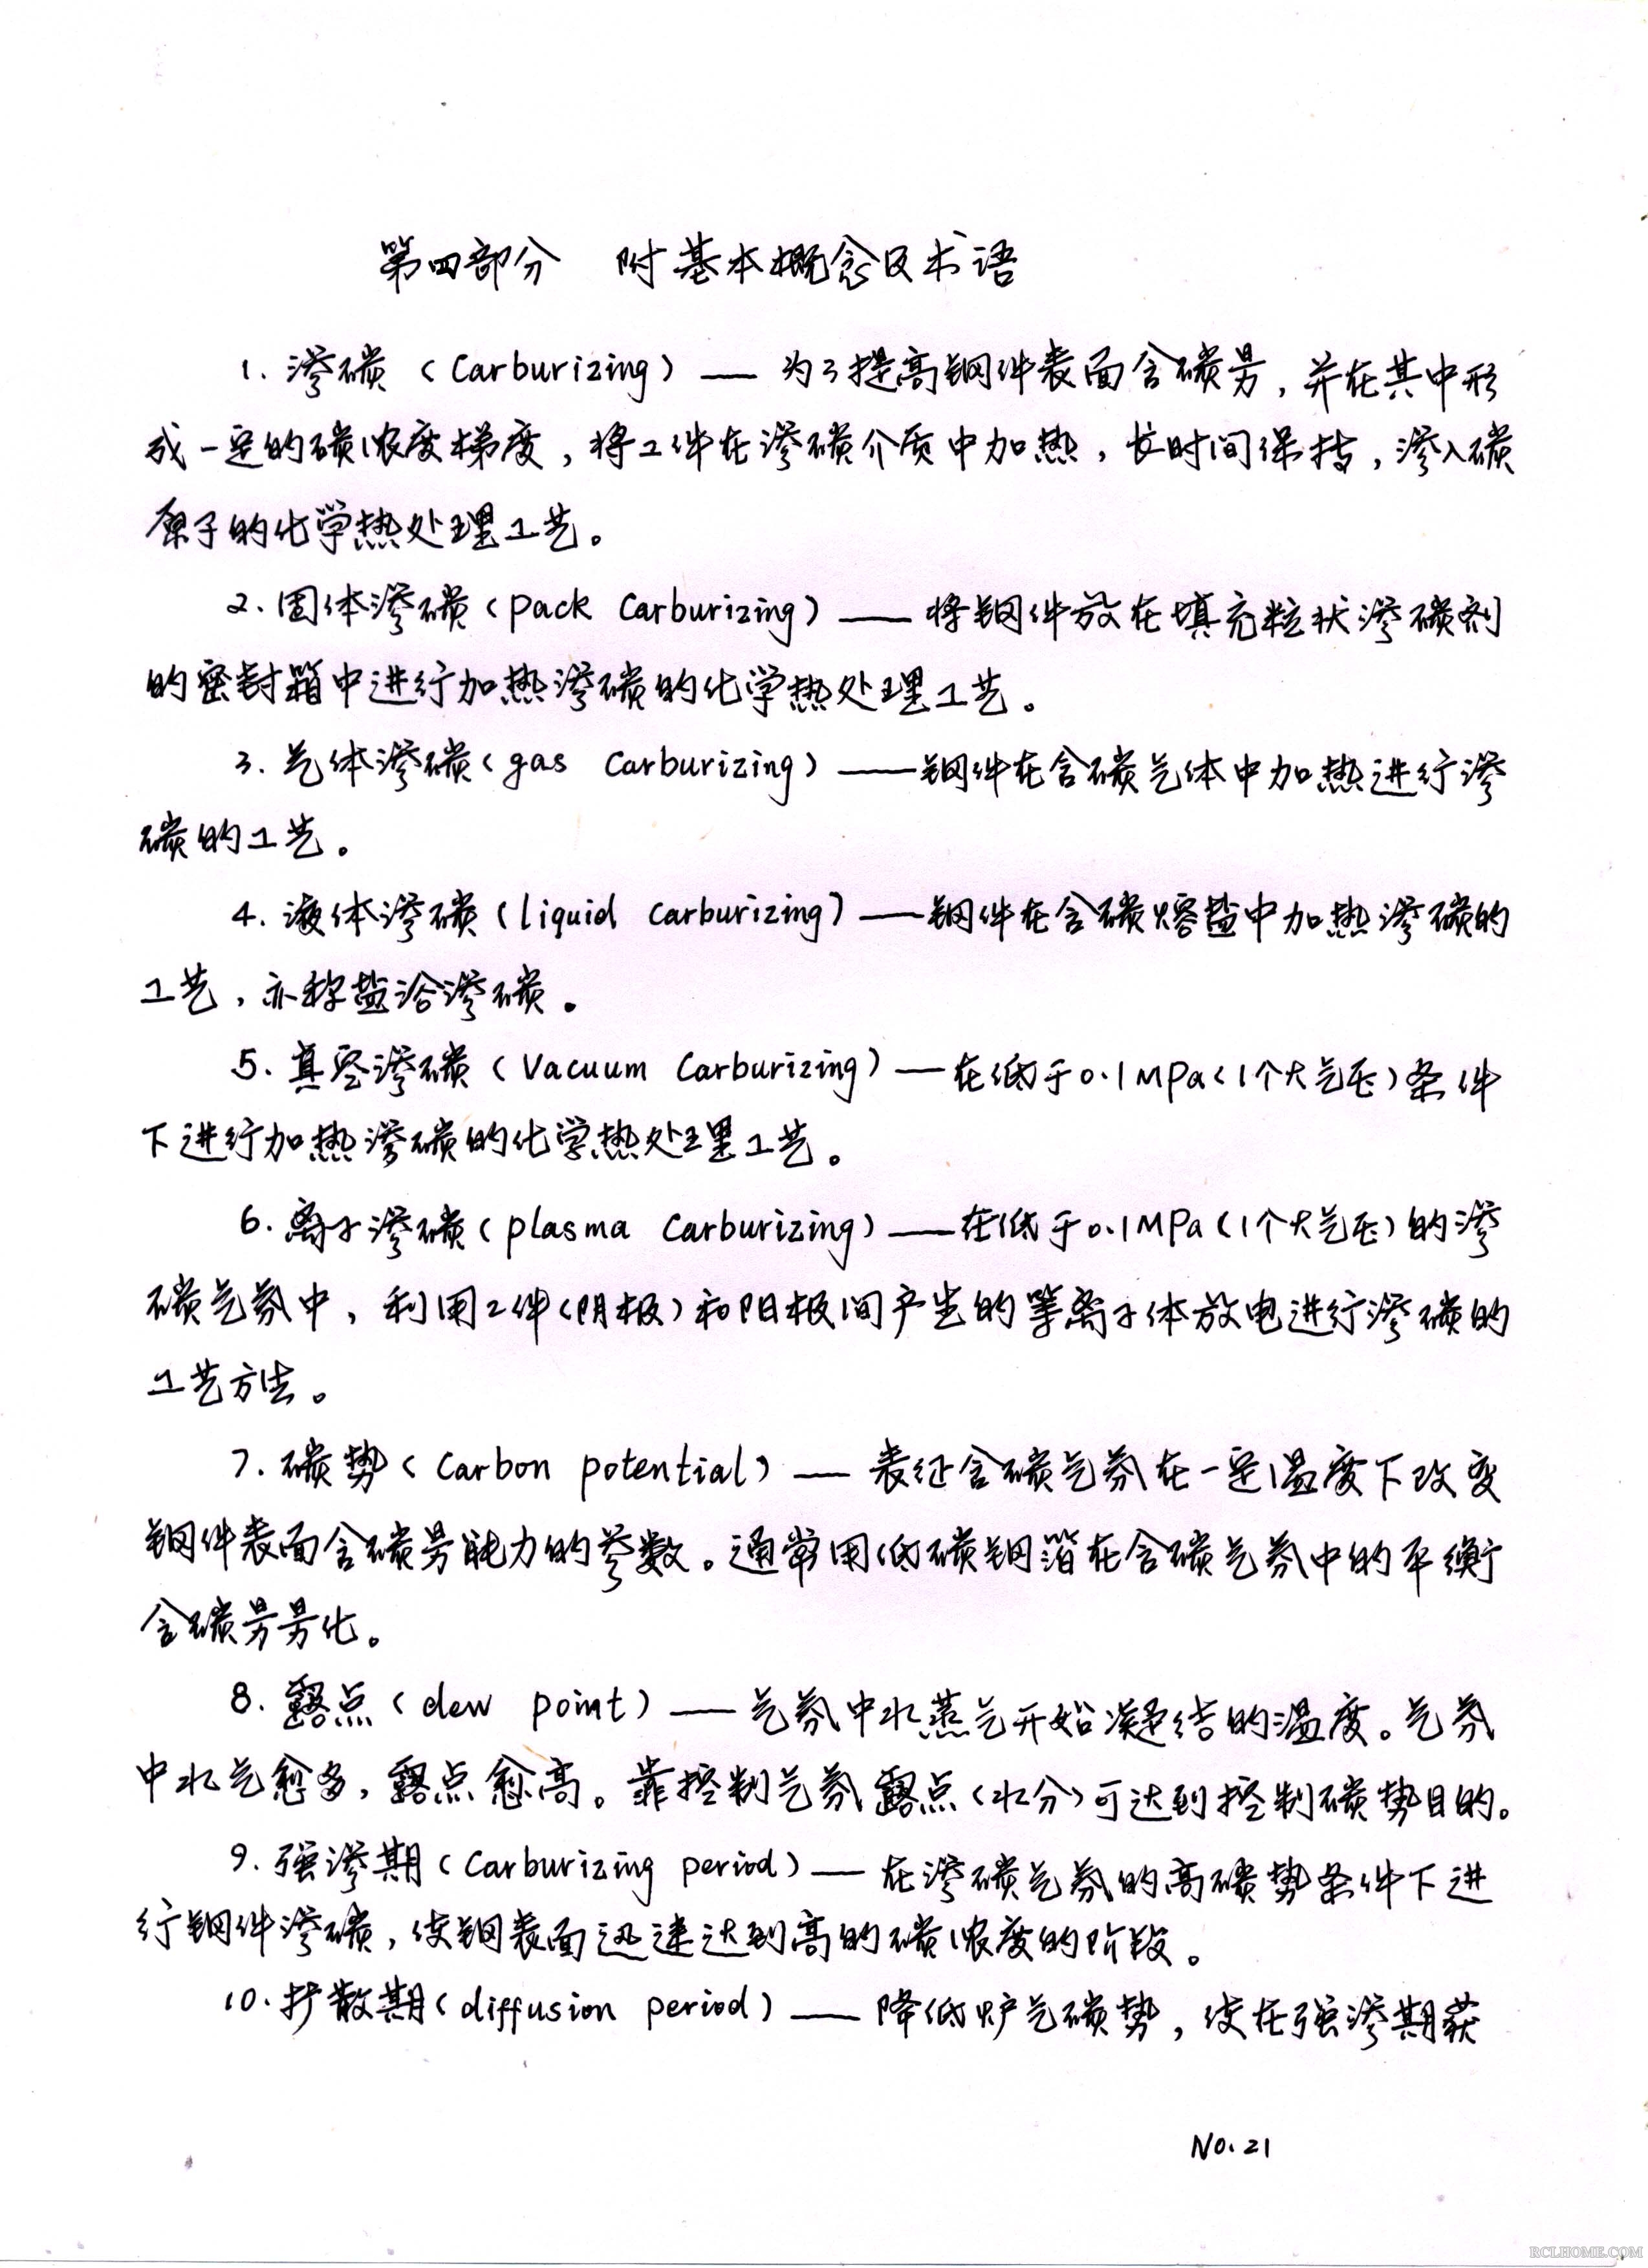 第四部分 附基本概念及术语
1. 渗碳（Carburizing）—— 为了提高钢件表面含碳量，并在其中形
成一定的碳浓度梯度，将工件在渗碳介质中加热，长时间保持，渗入碳
原子的化学热处理工艺。
2. 固体渗碳（pack Carburizing）——将钢件放在填充粒状渗碳剂
的密封箱中进行加热渗碳的化学热处理工艺。
3. 气体渗碳（gas Carburizing）——钢件在含碳气体中加热进行渗
碳的工艺。
4. 液体渗碳（liquid Carburizing）——钢件在含碳熔盐中加热渗碳的
工艺，亦称盐浴渗碳。
5. 真空渗碳（Vacuum Carburizing）—在低于0.1MPa（1个大气压）条件
下进行加热渗碳的化学热处理工艺。
6. 离子渗碳（plasma Carburizing）——在低于0.1MPa（1个大气压）的渗
碳气氛中，利用工件（阴极）和阳极间产生的等离子体放电进行渗碳的
工艺方法。
7. 碳势（Carbon potential）—— 表征含碳气氛在一定温度下改变
钢件表面含碳量能力的参数。通常用低碳钢箔在含碳气氛中的平衡
含碳量量化。
8. 露点（dew point）——气氛中水蒸气开始凝结的温度。气氛
中水气愈多，露点愈高。靠控制气氛露点（水分）可达到控制碳势目的。
9. 强渗期（Carburizing period）—— 在渗碳气氛的高碳势条件下进
行钢件渗碳，使钢表面迅速达到高的碳浓度的阶段。
10. 扩散期（diffusion period）—— 降低炉气碳势，使在强渗期获
NO. 21
RCLHOME.COM